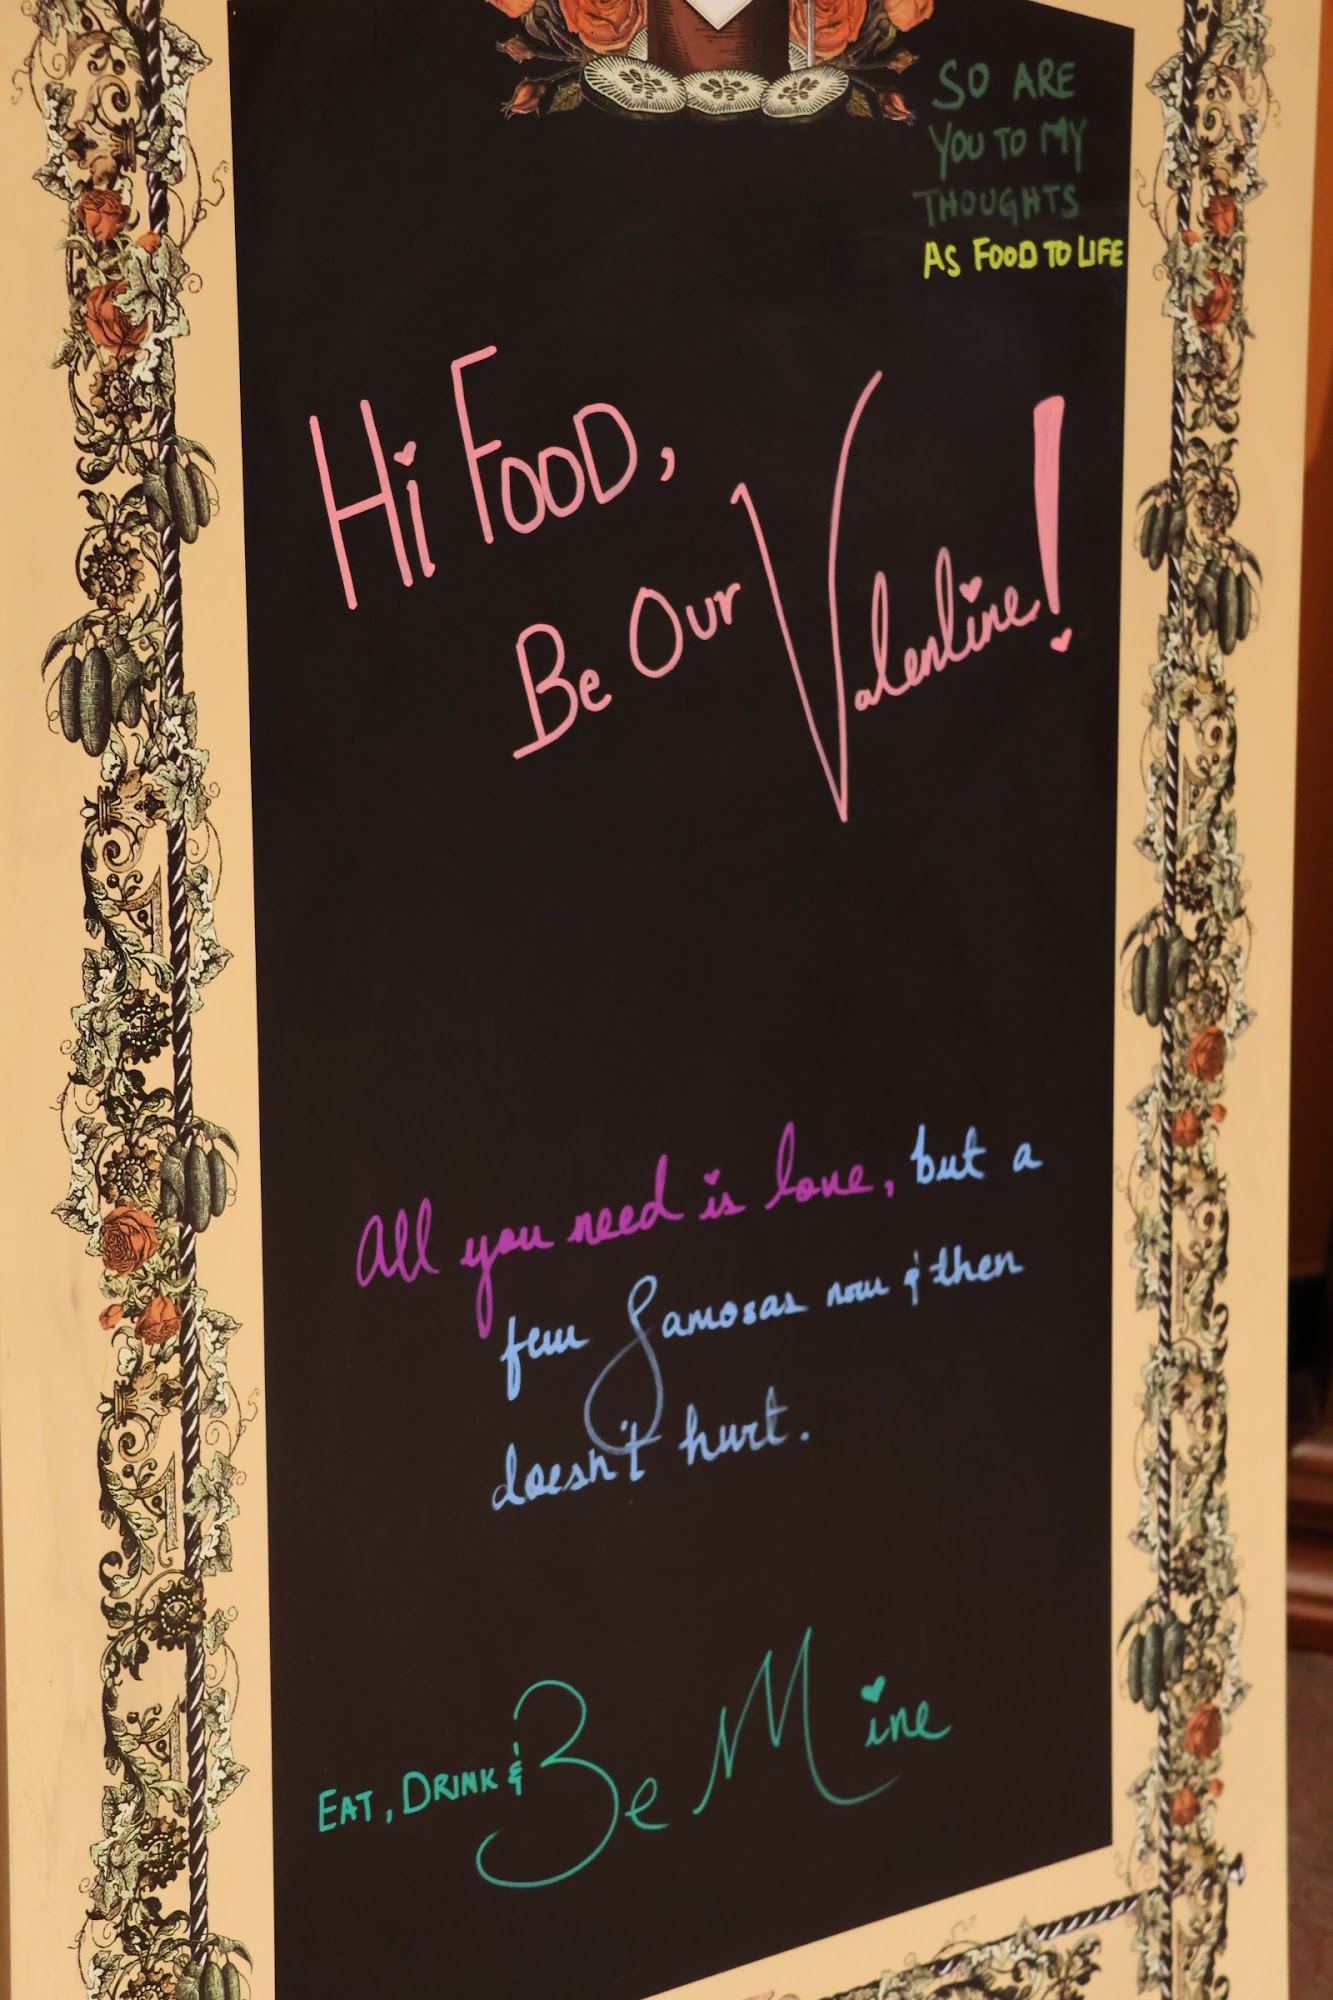 SO ARE
YOU TO MY
THOUGHTS
AS FOOD TO LIFE
Hi FOOD,
Be Our Valentine!
All you need is love, but a
few Samosas now & then
doesn't hurt.
EAT, DRINK & Be Mine